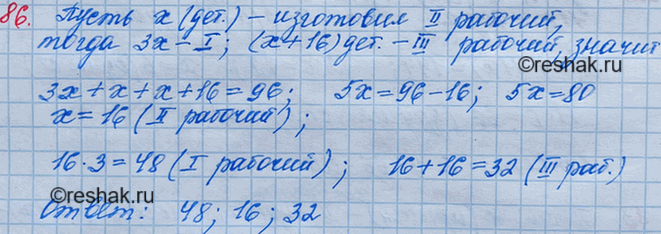 86. Пусть x (дет.) – изготовил II рабочий,
тогда 3x – I; (x+16) дет. – III рабочий, значит
©reshak.ru
3x + x + x + 16 = 96; 5x = 96 – 16; 5x = 80
x = 16 (II рабочий);
16 · 3 = 48 (I рабочий); 16 + 16 = 32 (III раб.)
©reshak.ru
Ответ: 48; 16; 32